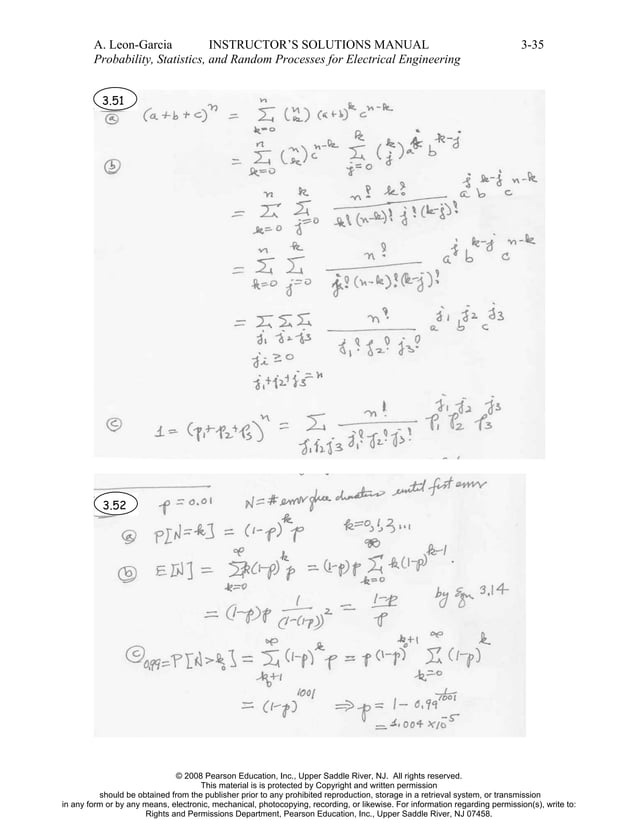 A. Leon-Garcia INSTRUCTOR'S SOLUTIONS MANUAL 3-35
Probability, Statistics, and Random Processes for Electrical Engineering
3.51
ⓐ (a+b+c)^n = Σ_{k=0}^{n} (n k) (a+b)^k c^{n-k}
ⓑ = Σ_{k=0}^{n} (n k) c^{n-k} Σ_{j=0}^{k} (k j) a^j b^{k-j}
= Σ_{k=0}^{n} Σ_{j=0}^{k} n! k! / k! (n-k)! j! (k-j)! a^j b^{k-j} c^{n-k}
= Σ_{k=0}^{n} Σ_{j=0}^{k} n! / j! (n-k)! (k-j)! a^j b^{k-j} c^{n-k}
= Σ_{j1} Σ_{j2} Σ_{j3} n! / j1! j2! j3! a^{j1} b^{j2} c^{j3}
ji ≥ 0
j1+j2+j3=n
ⓒ 1 = (p1+p2+p3)^n = Σ_{j1 j2 j3} n! / j1! j2! j3! p1^{j1} p2^{j2} p3^{j3}
3.52
p = 0.01 N = # error free characters until first error
ⓐ P[N=k] = (1-p)^k p k=0,1,2,...
ⓑ E[N] = Σ_{k=0}^{∞} k(1-p)^k p = (1-p)p Σ_{k=0}^{∞} k(1-p)^{k-1}
= (1-p)p 1/(1-(1-p))^2 = 1-p / p by Eqn 3.14
ⓒ 0.99 = P[N>k0] = Σ_{k0+1}^{∞} (1-p)^k p = p(1-p)^{k0+1} Σ_{k=0}^{∞} (1-p)^k
= (1-p)^{1001} ⇒ p = 1 - 0.99^{1/1001}
= 1.004 × 10^{-5}
© 2008 Pearson Education, Inc., Upper Saddle River, NJ. All rights reserved.
This material is is protected by Copyright and written permission
should be obtained from the publisher prior to any prohibited reproduction, storage in a retrieval system, or transmission
in any form or by any means, electronic, mechanical, photocopying, recording, or likewise. For information regarding permission(s), write to:
Rights and Permissions Department, Pearson Education, Inc., Upper Saddle River, NJ 07458.